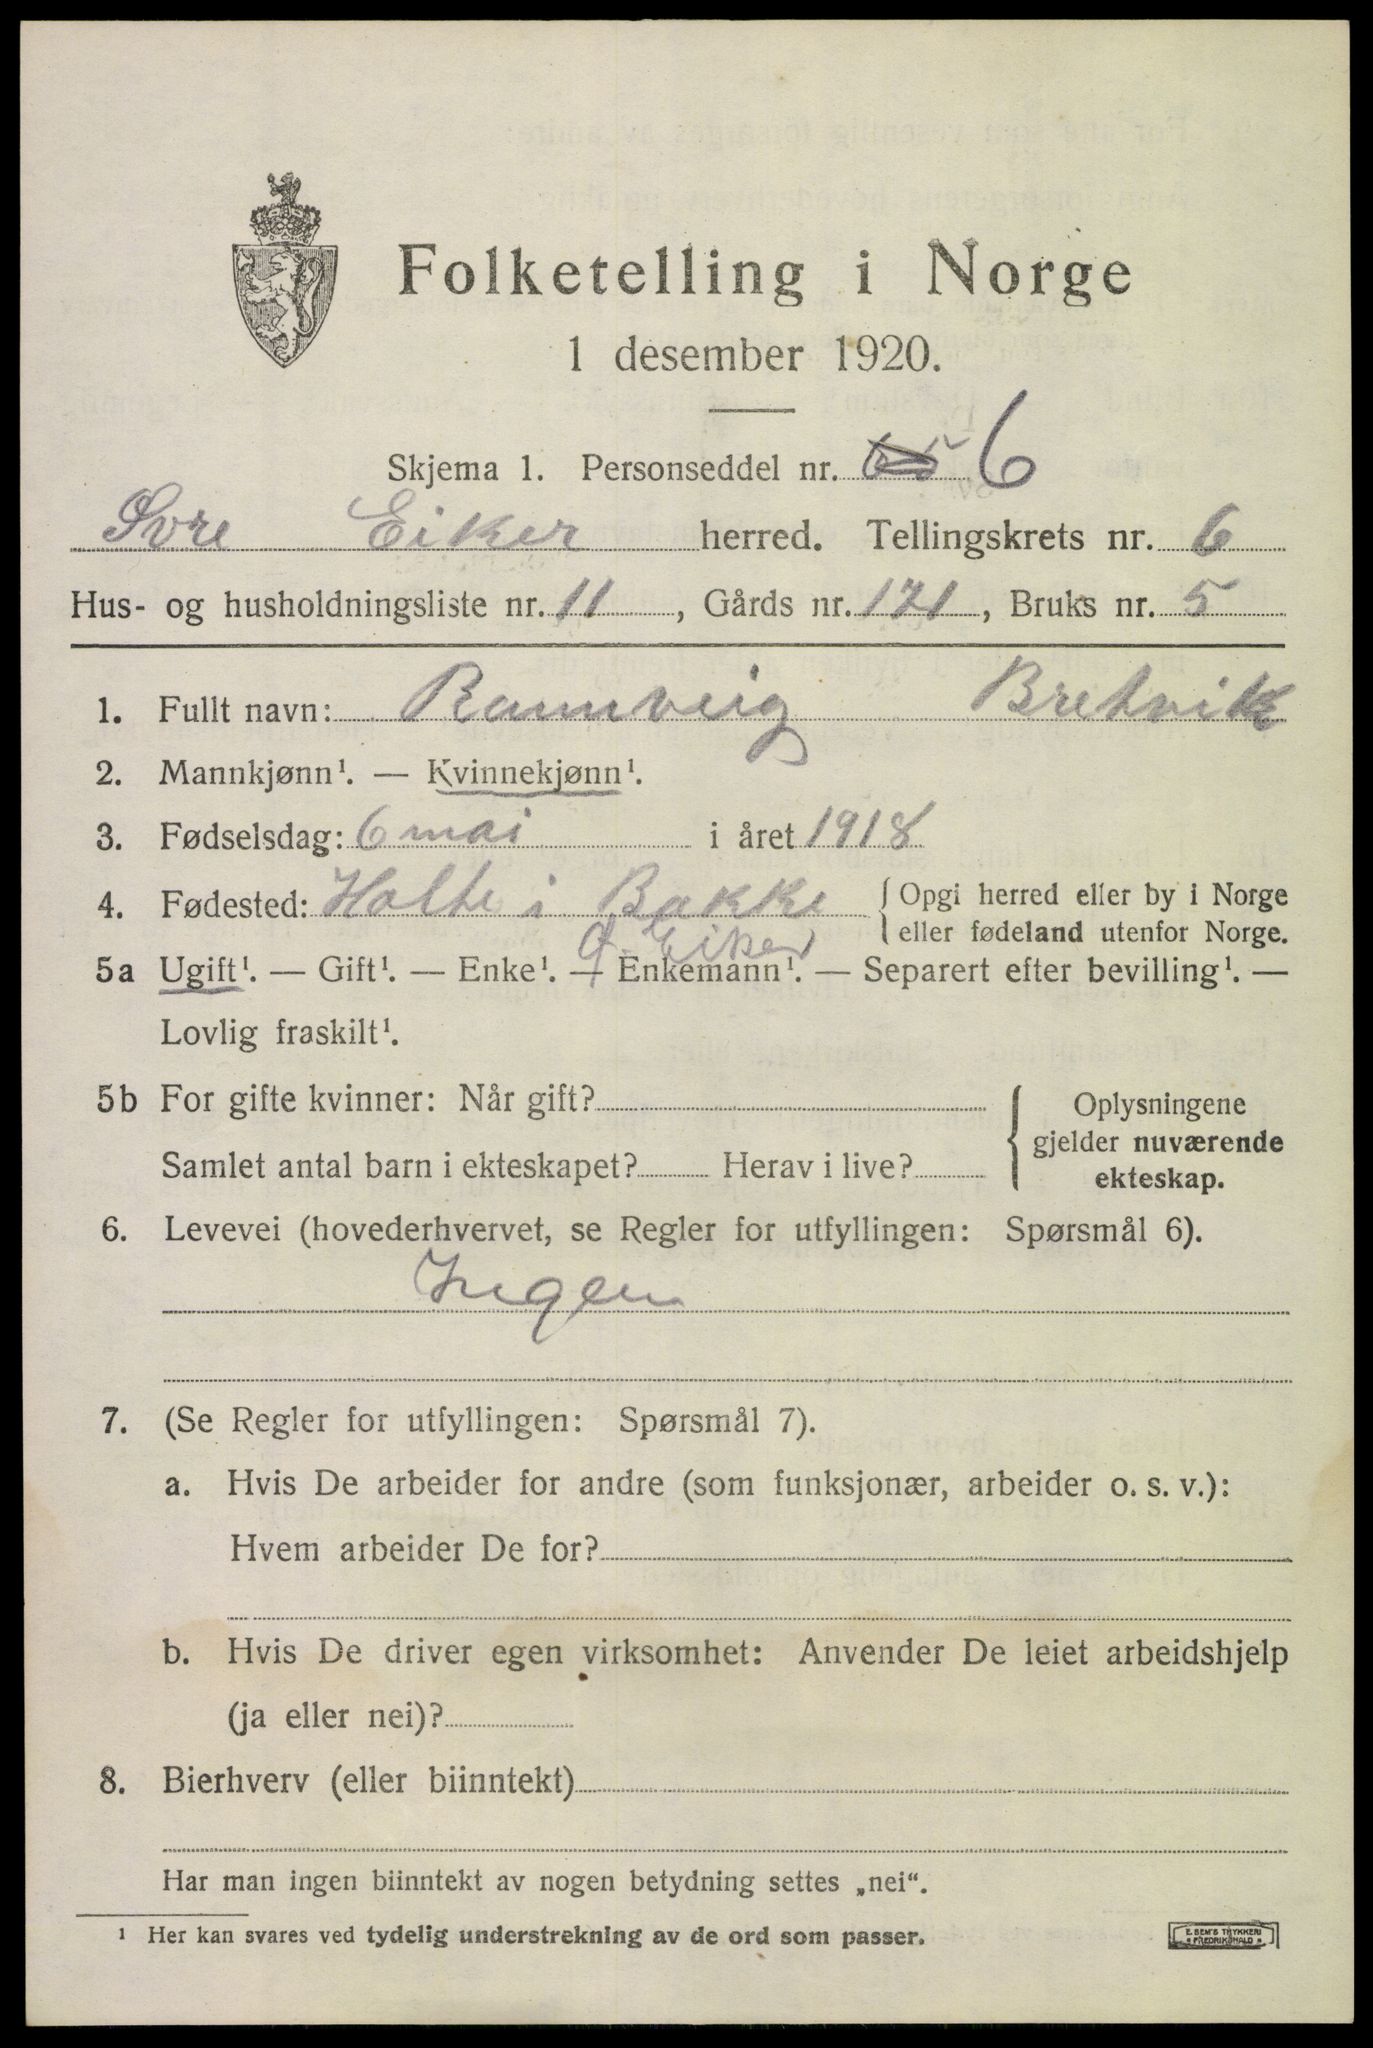 Folketelling i Norge
1 desember 1920.
Skjema 1. Personseddel nr. 6
Øvre Eiker herred. Tellingskrets nr. 6
Hus- og husholdningsliste nr. 11, Gårds nr. 121, Bruks nr. 5
1. Fullt navn: Rannveig Bretvik
2. Mannkjønn¹. — Kvinnekjønn¹.
3. Fødselsdag: 6 mai i året 1918
4. Fødested: Holte i Bakke { Opgi herred eller by i Norge
Ø. Eiker eller fødeland utenfor Norge.
5a Ugift¹. — Gift¹. — Enke¹. — Enkemann¹. — Separert efter bevilling¹. —
Lovlig fraskilt¹.
5b For gifte kvinner: Når gift? { Oplysningene
gjelder nuværende
Samlet antal barn i ekteskapet? Herav i live? ekteskap.
6. Levevei (hovederhvervet, se Regler for utfyllingen: Spørsmål 6).
Ingen
7. (Se Regler for utfyllingen: Spørsmål 7).
a. Hvis De arbeider for andre (som funksjonær, arbeider o. s. v.):
Hvem arbeider De for?
b. Hvis De driver egen virksomhet: Anvender De leiet arbeidshjelp
(ja eller nei)?
8. Bierhverv (eller biinntekt)
Har man ingen biinntekt av nogen betydning settes „nei“.
¹ Her kan svares ved tydelig understrekning av de ord som passer.
E. SEM'S TRYKKERI
FREDRIKSHALD